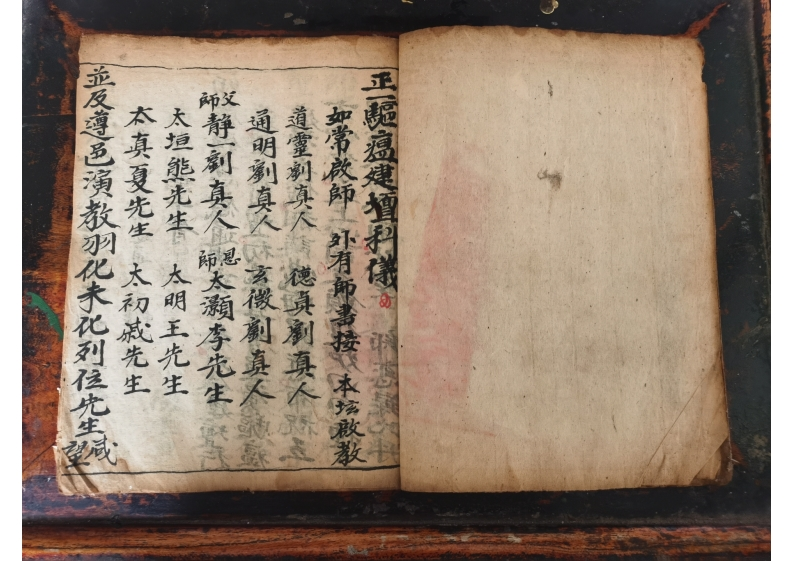 正一驅瘟建壇科儀
如常啟師 外有師書接 本坛啟教
道靈劉真人 德貞劉真人
通明劉真人 玄微劉真人
師父靜一劉真人 師恩太灝李先生
太垣熊先生 太明王先生
太真夏先生 太初戚先生
並及遵邑演教羽化未化列位先生咸望